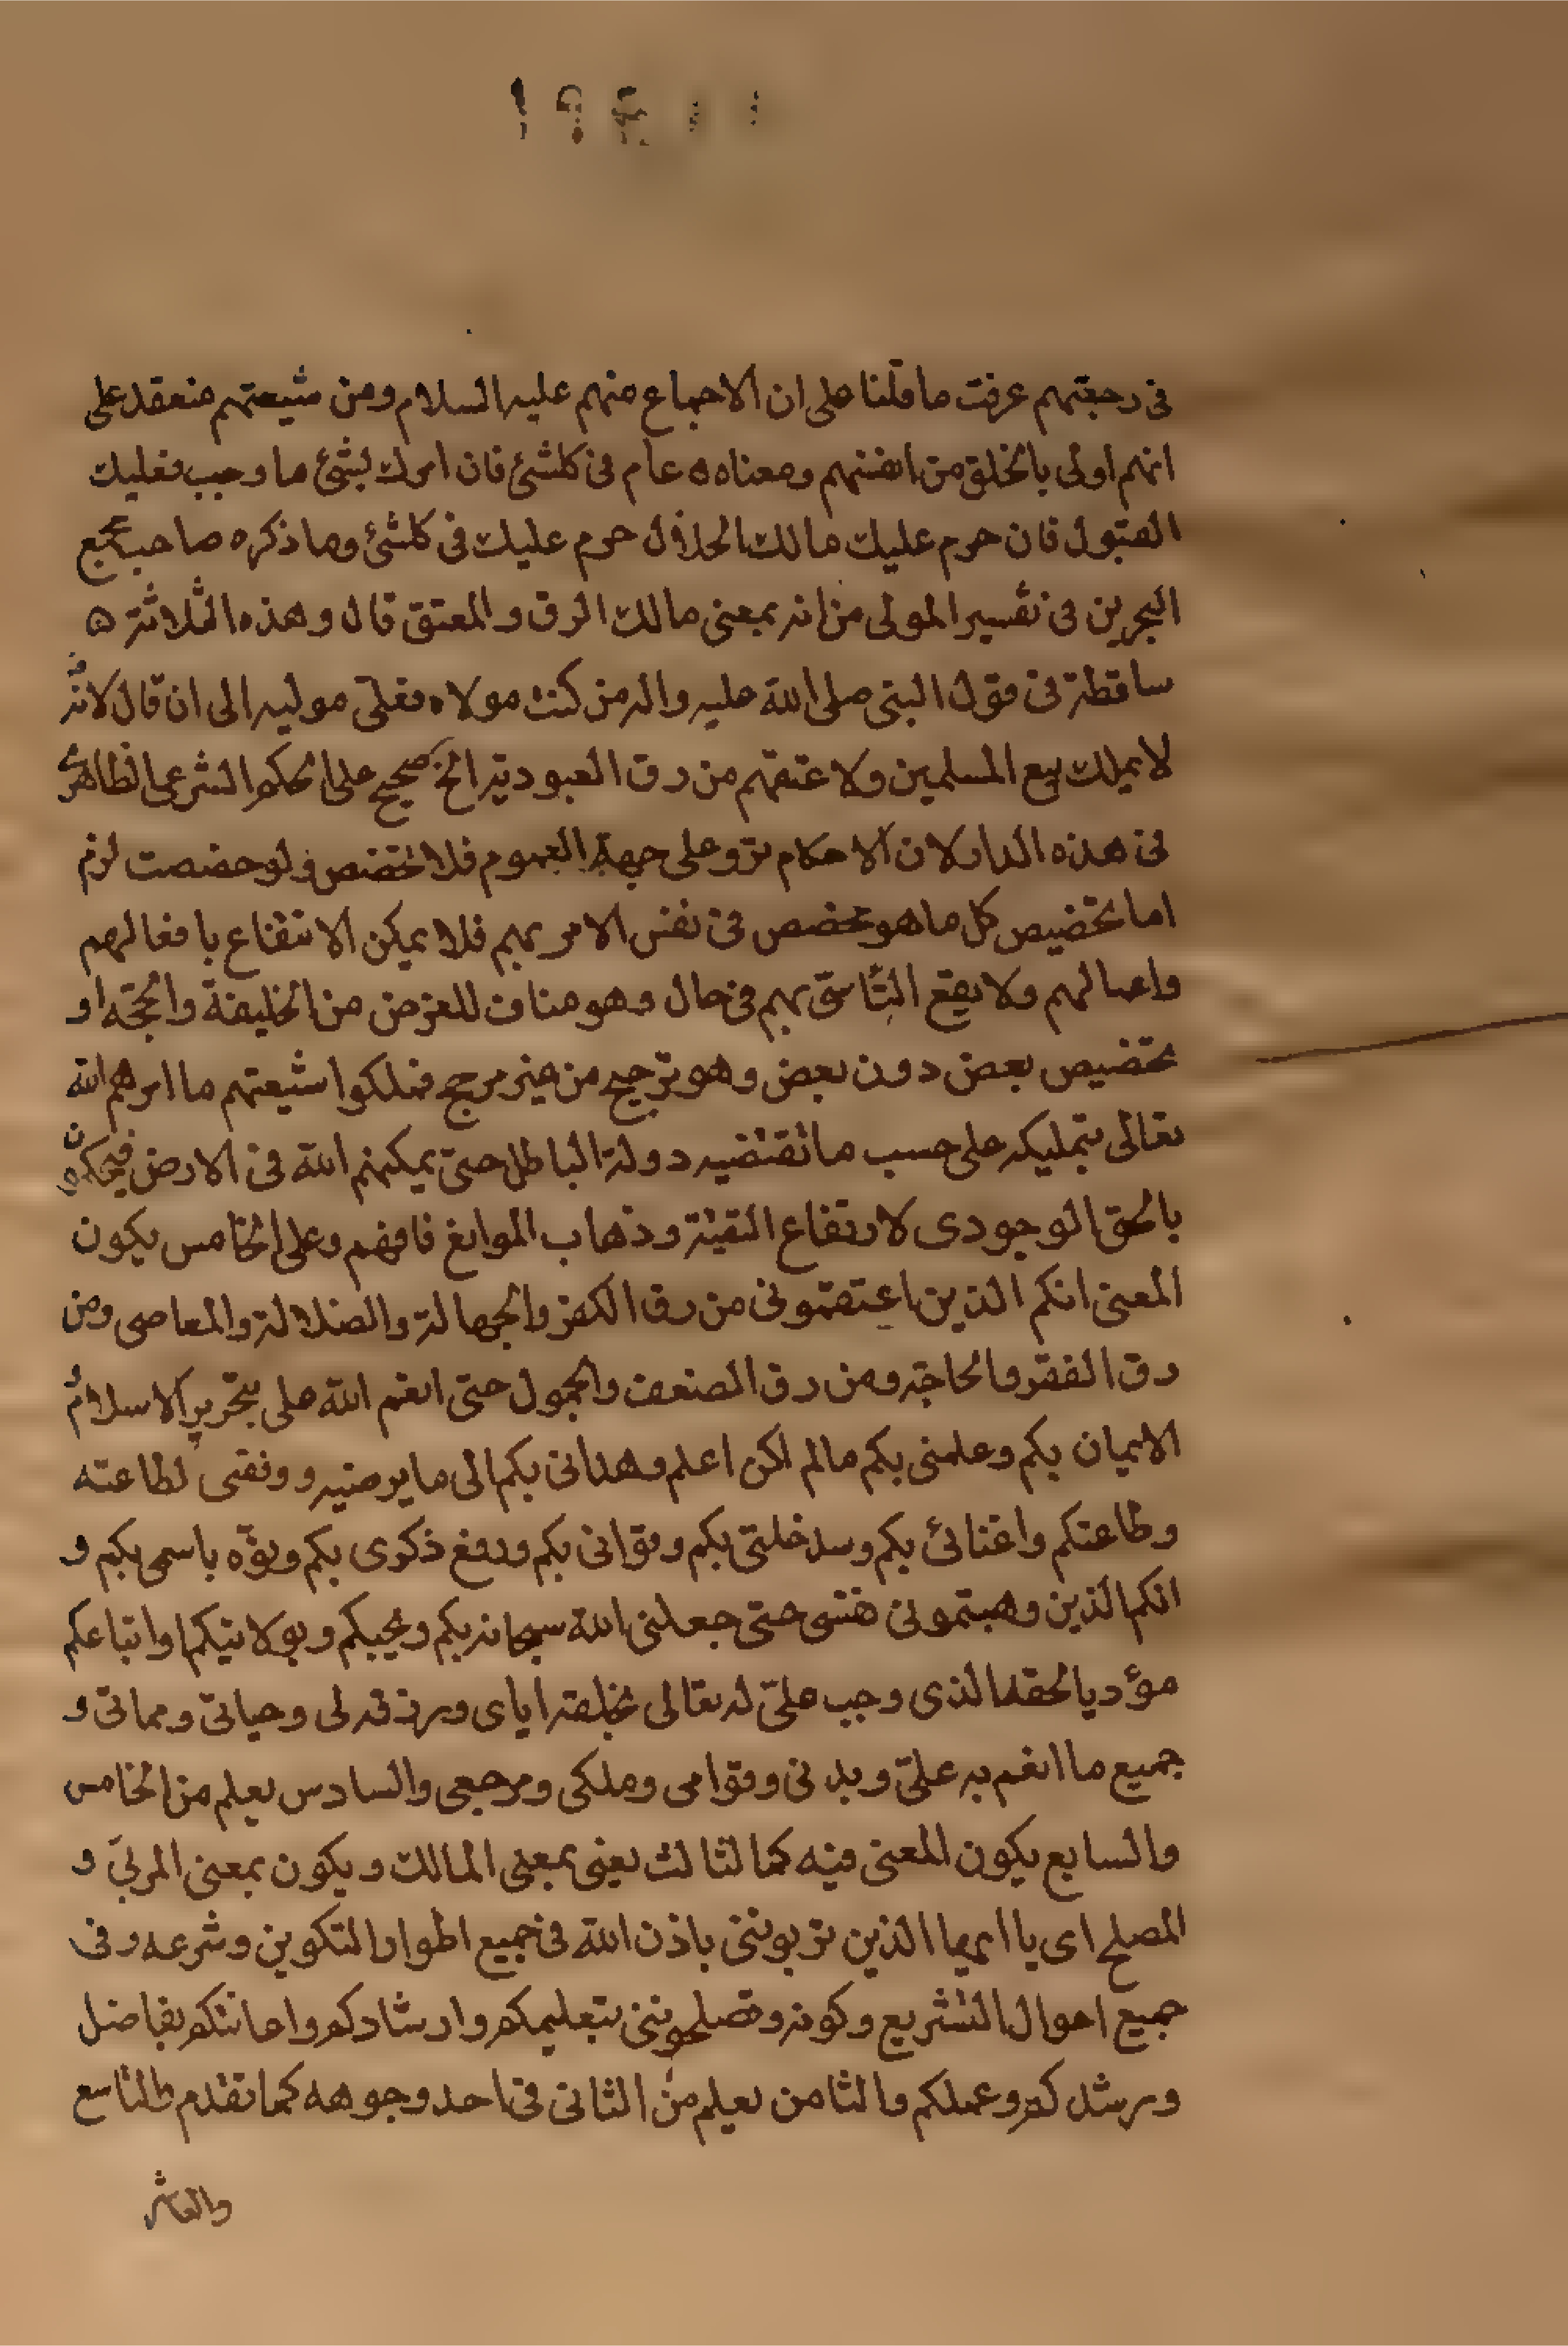 فى رجعتهم عرفت ما قلنا على ان الاجماع منهم عليه السلام ومن شيعتهم منعقد على
انهم اولى بالخلق من انفسهم ومعناه ه عام فى كلشئ فان امرك بشئ ما وجب فعليك
القبول فان حرم عليك مالك الحلال حرم عليك فى كلشئ وما ذكره صاحب مجمع
البحرين فى تفسير المولى من انه بمعنى مالك الرق والمعتق قال وهذه الثلاثة ه
ساقطة فى قول النبى صلى الله عليه واله من كنت مولاه فعلى موليه الى ان قال لانه
لا يملك بيع المسلمين ولا عتقهم من رق العبودية الخ صحيح على الحكم الشرعى الظاهرى
فى هذه الدار لان الاحكام ترد على جهة العموم فلا تختص ولو خصصت لزم
اما تخصيص كل ما هو مخصص فى نفس الامر بهم فلا يمكن الانتفاع بافعالهم
واعمالهم ولا يقع التأسى بهم فى حال وهو مناف للغرض من الخليفة والحجة او
تخصيص بعض دون بعض وهو ترجيح من غير مرجح فملكوا شيعتهم ما امرهم الله
تعالى بتمليكه على حسب ما تقتضيه دولة الباطل حتى يمكنهم الله فى الارض فيحكمون
بالحق الوجودى لارتفاع التقية وذهاب الموانع فافهم وعلى الخامس يكون
المعنى انكم الذين اعتقتمونى من رق الكفر والجهالة والضلالة والمعاصى ومن
رق الفقر والحاجة ومن رق الضعف والخمول حتى انعم الله على بتحرير الاسلام و
الايمان بكم وعلمنى بكم مالم اكن اعلم وهدانى بكم الى ما يرضيه ووفقنى لطاعته
وطاعتكم واغنائى بكم وسد خلتى بكم وقوانى بكم ورفع ذكرى بكم ونوّه باسمى بكم و
انكم الذين وهبتمونى نفسى حتى جعلنى الله سبحانه بكم وبحبكم وبولايتكم واتباعكم
مؤديا لحقه الذى وجب علىّ له تعالى بخلقه اياى ورزقه لى وحياتى ومماتى و
جميع ما انعم به علىّ وبدنى وقوامى وملكى ومرجعى والسادس يعلم من الخامس
والسابع يكون المعنى فيه كما لثالث يعنى بمعنى المالك ويكون بمعنى المربى و
المصلح اى يا ايها الذين تربوننى باذن الله فى جميع اطوار التكوين وشرعه وفى
جميع احوال التشريع وكونه وتصلحوننى بتعليمكم وارشادكم واعانتكم بفاضل
ورشدكم وعملكم والثامن يعلم من الثانى فى احد وجوهه كما تقدم والتاسع
والعاشر